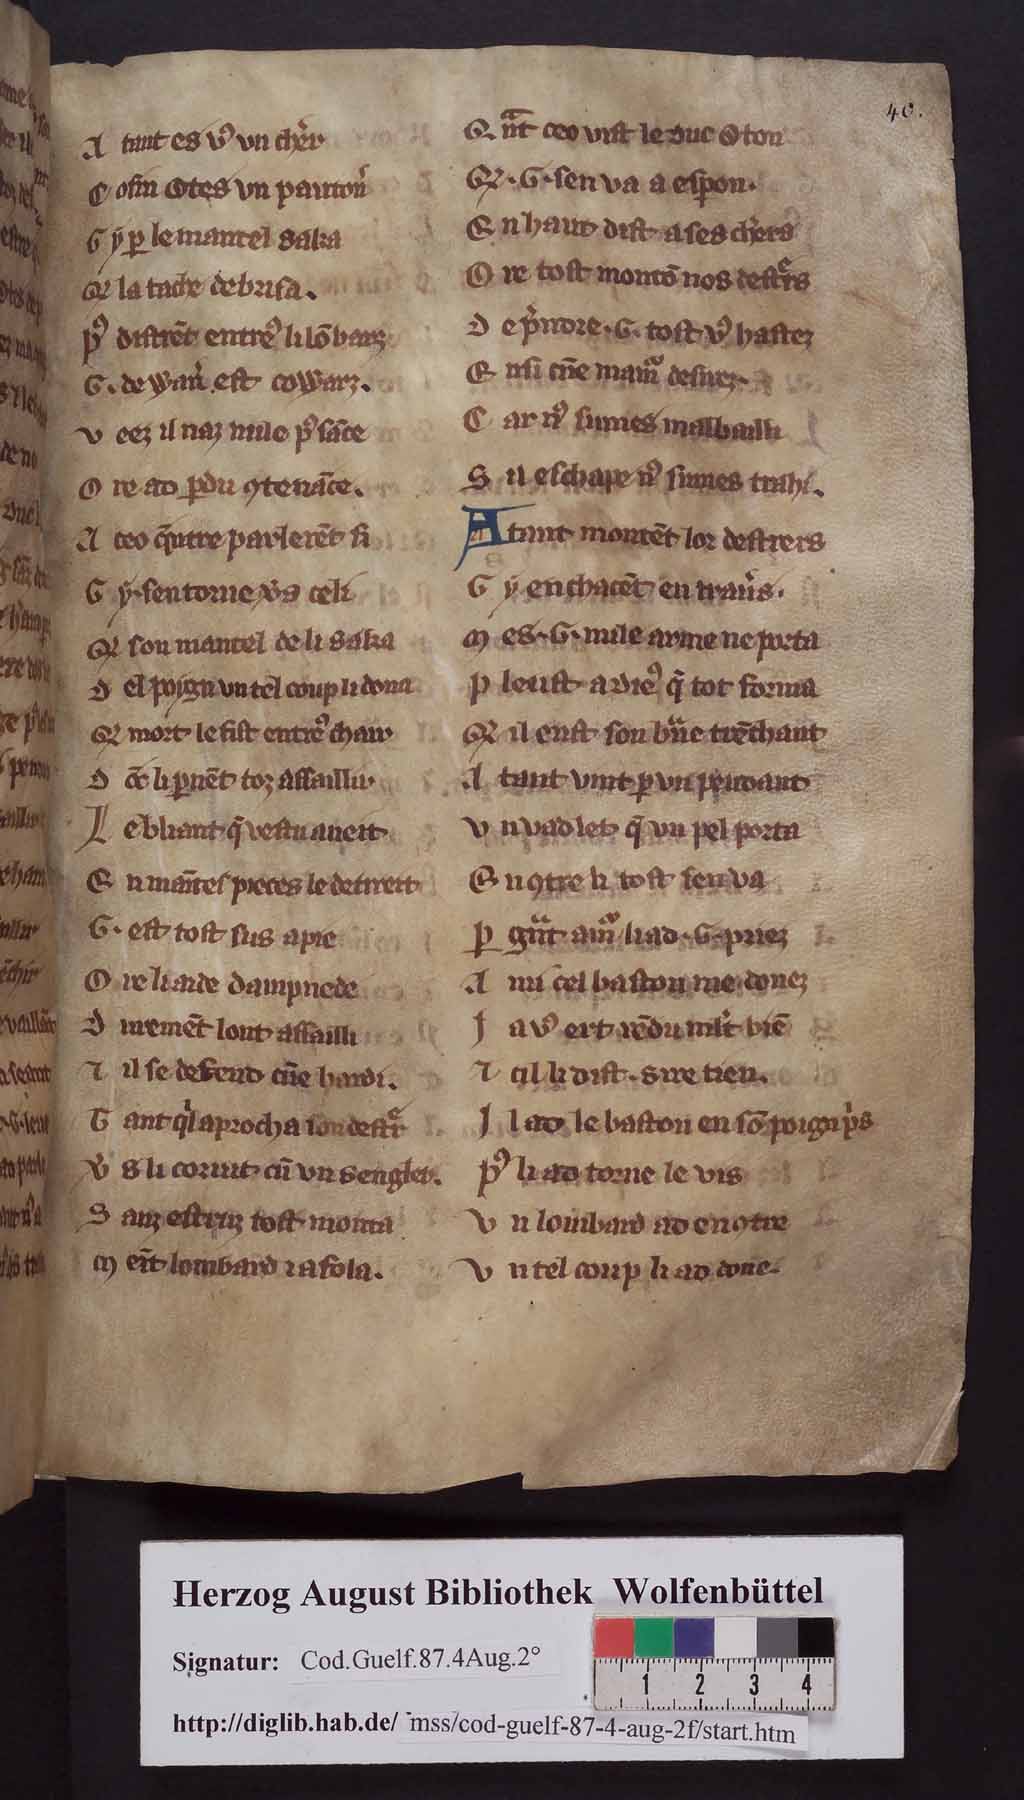 40.
A tant es vꝰ vn cheꝛ
C osin Otes vn pautoñ
G ẏ ꝑ le mantel saka
Q la tache debrisa.
Pꝰ distrēt entreꝰ li lōbarz
G. de Waꝛ est cowarz.
V eez il naz mile pꝰ sāce
O re ad ꝑdu ꝯtenāce.
A ceo q̄ntre parlerēt si
G ẏ. sen torne vs celi
Q son mantel de li saka
D el poẏgn vn tel coup li dona
Q mort le fist entreꝰ chair
D ōc li ꝑnēt toz assaillir
L e bliant q̄ vestu aueit
E n mañtes pieces le detireit
G. est tost sus a pie
O re li aide dampnede
D urement lont assailli
⁊ il se defend cūe hardi.
T ant ql aprocha son destꝛ
Vs li corut cū vn sengler.
S anz estriu tost monta
M eīt lombard i afola.
Q nt̄ ceo vist le duc Oton
Q. G. sen va a espon.
E n haut dist a ses cheꝛs
O re tost montō nos destꝛs
D e pñdre. G. tost vꝰ hastez
E nsi cūe mam̄ desirez.
C ar nꝰ sumes malbailli
S il eschape nꝰ sumes trahi.
A tant montēt lor destrers
G ẏ enchacēt en trau̾s.
M es. G. nule arme ne porta
P leust a dieꝰ q̄ tot forma
Q il eust son bñc trēchant
A tant vint ꝑ vn pendant
V n vadlet q̄ vn pel porta
E nꝯtre li tost sen va
P gn̄t am̄ li ad. G. priez
A mi cel baston me donez
J a vꝰ ert rēdu ml̄t biē
⁊ cil li dist. sire tien.
J l ad le baston en sō poign pis
Pꝰ li ad torne le vis
V n lombard ad enꝯtre
V n tel coup li ad done.
Herzog August Bibliothek Wolfenbüttel
Signatur: Cod.Guelf.87.4Aug.2°
1 2 3 4
http://diglib.hab.de/ mss/cod-guelf-87-4-aug-2f/start.htm